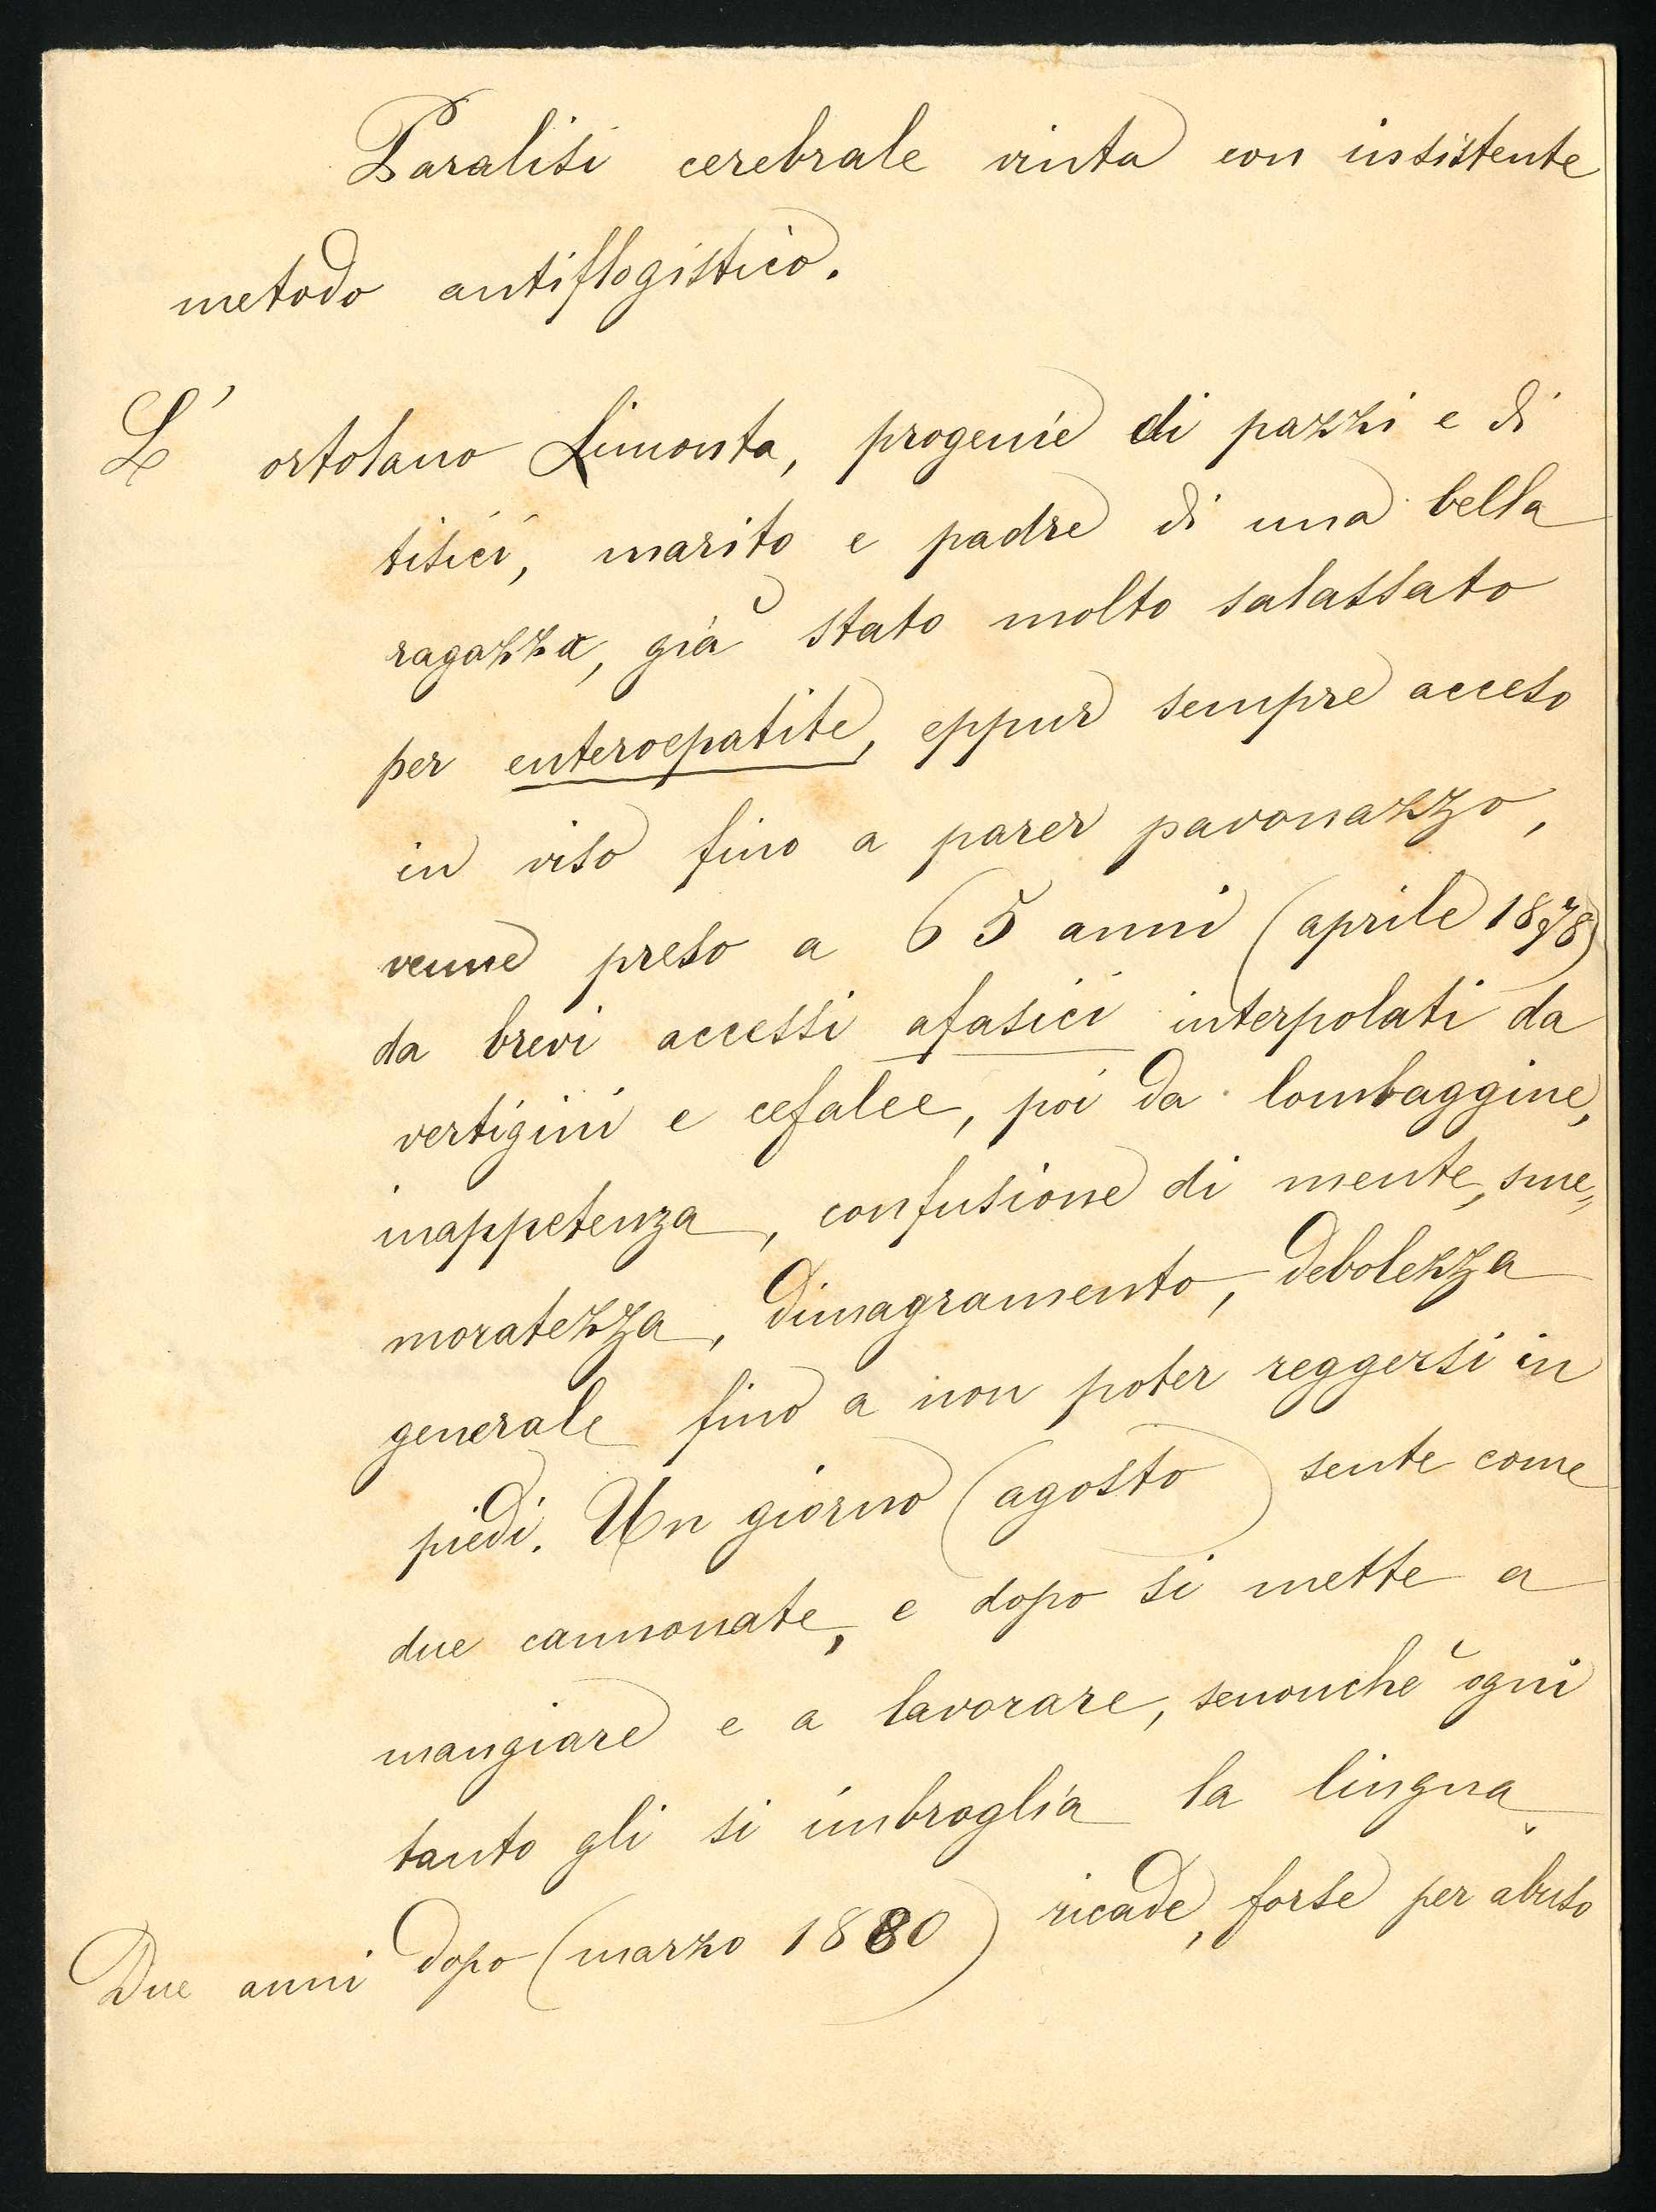 Paralisi cerebrale vinta con insistente
metodo antiflogistico.
L' ortolano Limonta, progenie di pazzi e di
tisici, marito e padre di una bella
ragazza, già stato molto salassato
per enteroepatite, eppur sempre acceso
in viso fino a parer pavonazzo,
venne preso a 65 anni (aprile 1878)
da brevi accessi afasici interpolati da
vertigini e cefalee, poi da lombaggine,
inappetenza, confusione di mente, sme„
moratezza, dimagramento, debolezza
generale fino a non poter reggersi in
piedi. Un giorno (agosto) sente come
due cannonate, e dopo si mette a
mangiare e a lavorare, senonchè ogni
tanto gli si imbroglia la lingua
Due anni dopo (marzo 1880) ricade, forse per abuso